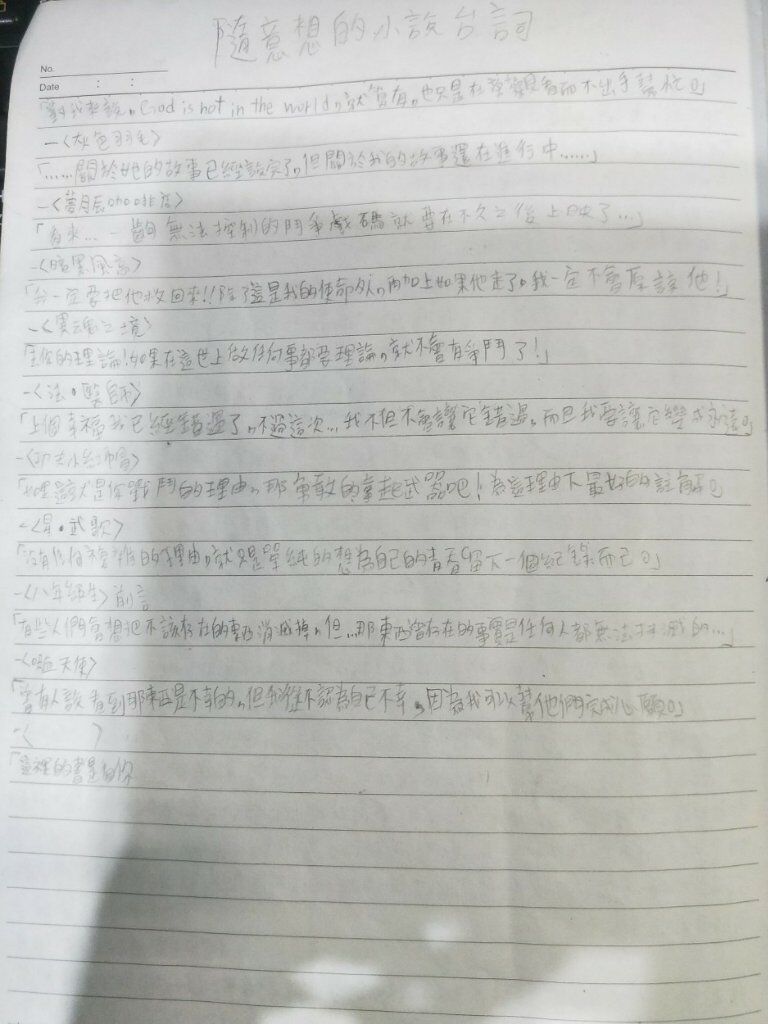 隨意想的小說台詞
No.
Date : :
「對我來說，God is not in the world，就算有，也只是在旁觀看而不出手幫忙。」
—<灰色羽毛>
「……關於她的故事已經說完了，但關於我的故事還在進行中……」
—<蒼月辰咖啡店>
「看來…一齣無法控制的鬥爭戲碼就要在不久之後上映了…」
—<暗黑風高>
「一定要把他收回來!!除了這是我的使命外，再加上如果他走了，我一定不會原諒他!」
—<異魂之境>
「的理論!如果在這世上做任何事都要理論，就不會有爭鬥了!」
—<法•醫師>
「上個幸福我已經錯過了，不過這次…我不但不會讓它錯過，而且我要讓它變成永遠。」
—<小紅帽>
「如果這就是你戰鬥的理由，那勇敢的拿起武器吧!為這理由下最好的註解。」
—<•武歌>
「沒有任何的理由，就只是單純的想為自己的青春留下一個紀錄而已。」
—<八年級生>前言
「有些人們會想把不該存在的東西消滅掉，但…那東西曾存在的事實是任何人都無法抹滅的…」
—<天使>
「曾有人說看到那東西是不幸的，但我從不認為自己不幸，因為我可以幫他們完成心願。」
—< >
「這裡的書是由你